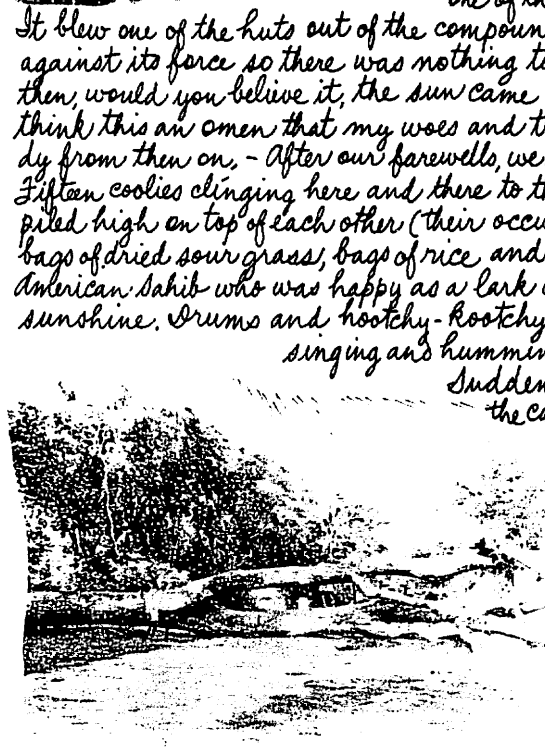 one of th
It blew one of the huts out of the compoun
against its force so there was nothing to
then, would you believe it, the sun came
think this an omen that my woes and t
dy from then on. - After our farewells, we
Fifteen coolies clinging here and there to th
piled high on top of each other (their occu
bags of dried sour grass, bags of rice and
American Sahib who was happy as a lark
sunshine. Drums and hootchy-kootchy
singing and hummin
Sudden
the ca